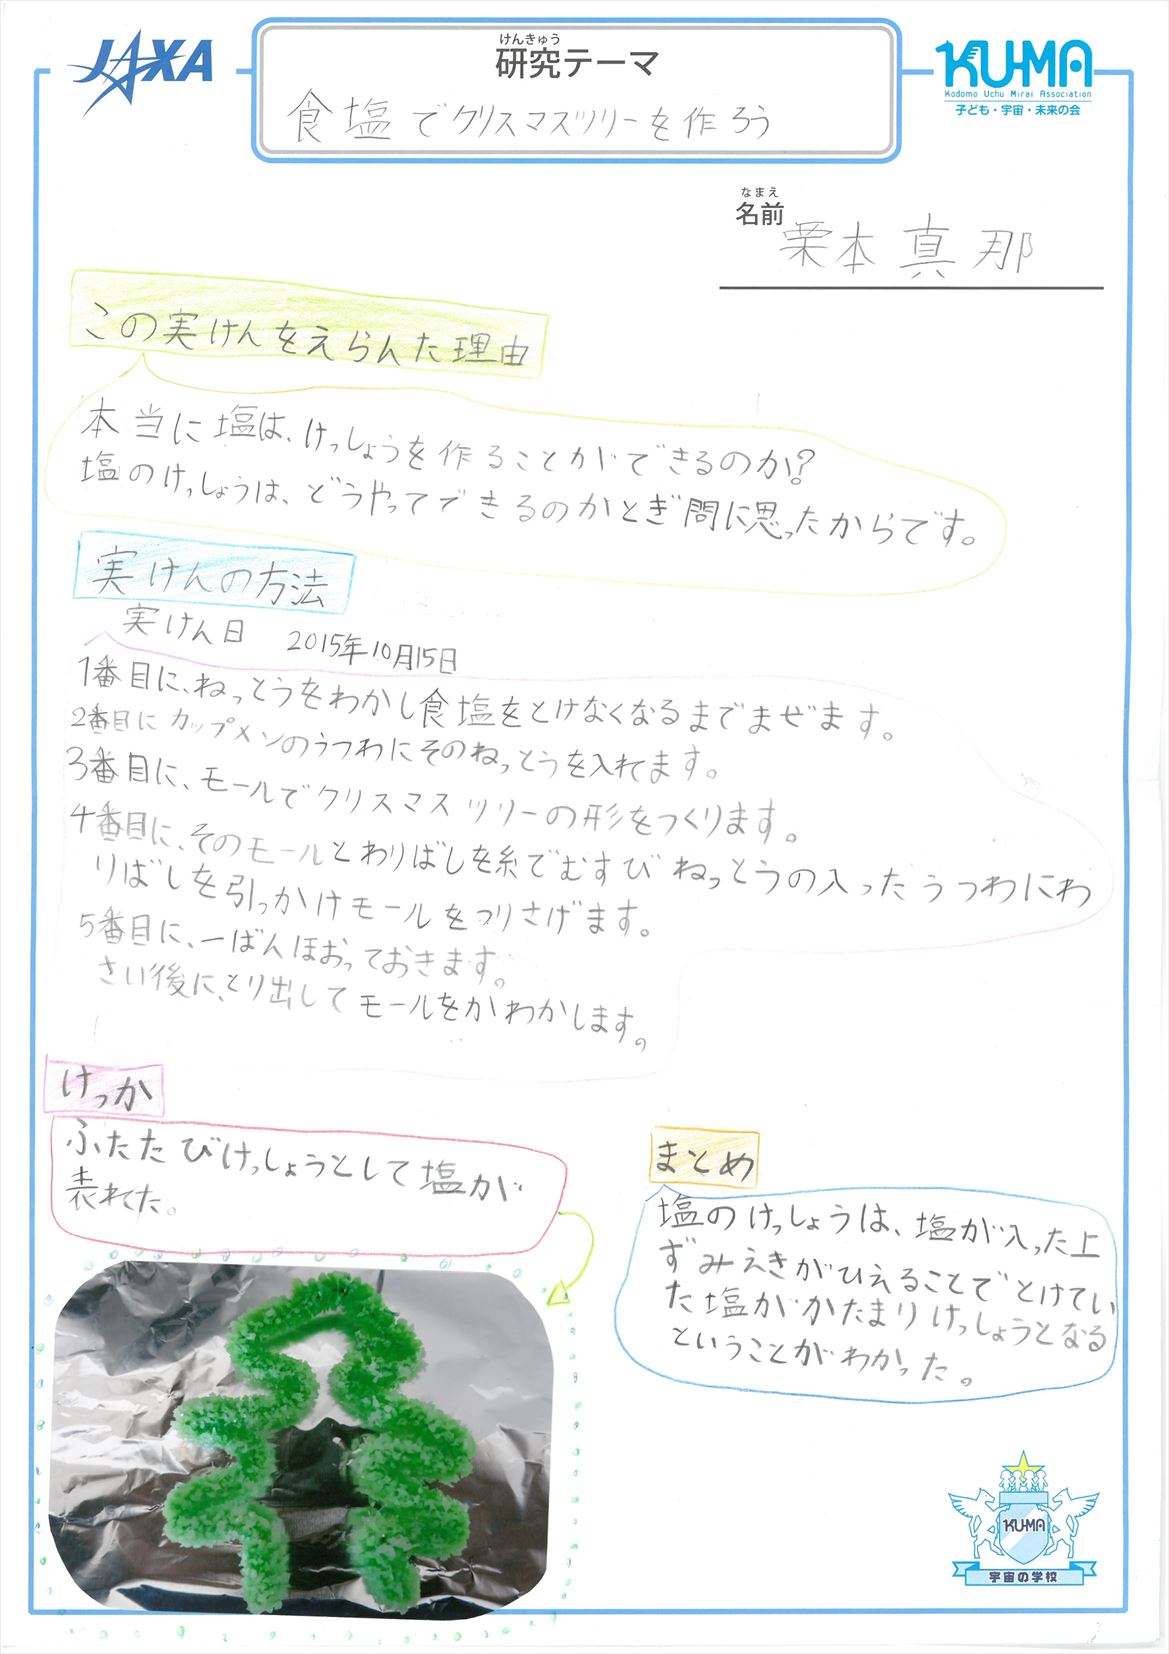 JAXA
けんきゅう
研究テーマ
食塩でクリスマスツリーを作ろう
KU-MA
Kodomo Uchu Mirai Association
子ども・宇宙・未来の会
なまえ
名前
栗本真那
この実けんをえらんだ理由
本当に塩は、けっしょうを作ることができるのか?
塩のけっしょうは、どうやってできるのかとぎ問に思ったからです。
実けんの方法
実けん日 2015年10月15日
1番目に、ねっとうをわかし食塩をとけなくなるまでまぜます。
2番目にカップメンのうつわにそのねっとうを入れます。
3番目に、モールでクリスマスツリーの形をつくります。
4番目に、そのモールとわりばしを糸でむすびねっとうの入ったうつわにわ
りばしを引っかけモールをつりさげます。
5番目に、一ばんほおっておきます。
さい後に、とり出してモールをかわかします。
けっか
ふたたびけっしょうとして塩が
表れた。
まとめ
塩のけっしょうは、塩が入った上
ずみえきがひえることでとけてい
た塩がかたまりけっしょうとなる
ということがわかった。
KU-MA
宇宙の学校